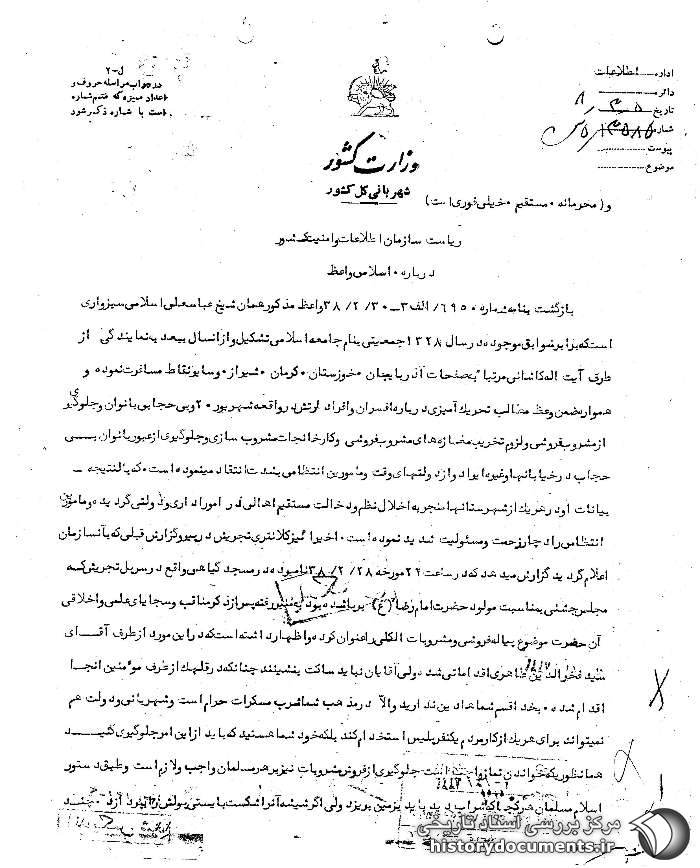 اداره اطلاعات
دائره
تاریخ
شماره
پیوست
موضوع
ل-۲
در جواب مراسله حروف و
اعداد ممیزه که فقدم شماره
است با شماره ذکر شود
وزارت کشور
شهربانی کل کشور
و (محرمانه ۰ مستقیم ۰ خیلی فوری است)
ریاست سازمان اطلاعات و امنیت کشور
درباره ۰ اسلامی واعظ
بازگشت بنامه شماره ۶۹۵۰ /الف ۳ـ ۳۸/۲/۳۰ واعظ مذکور همان شیخ عباسعلی اسلامی سبزواری
است که برابر سوابق موجوده در سال ۱۳۲۸ جمعیتی بنام جامعه اسلامی تشکیل و از آنسال ببعد بنمایندگی از
طرف آیت اله کاشانی مرتبا بصفحات آذربایجان ۰ خوزستان ۰ کرمان ۰ شیراز ۰ وسایر نقاط مسافرت نموده و
همواره ضمن وعظ مطالب تحریک آمیزی درباره افسران و افراد ارتش در واقعه شهریور ۲۰ و بی حجابی بانوان و جلوگیری
از مشروب فروشی و لزوم تخریب مغازه های مشروب فروشی وکارخانجات مشروب سازی و جلوگیری از عبور بانوان بی
حجاب در خیابانها و غیره ایراد و از دولتهای وقت و مامورین انتظامی بشدت انتقاد مینموده است ۰ که بالنتیجه ـ
بیانات او در هریک از شهرستانها منجر به اخلال نظم و دخالت مستقیم اهالی در امور اداری و دولتی گردیده و مامورین
انتظامی را دچار زحمت و مسئولیت شدید نموده است ۰ اخیرا نیز کلانتری تجریش در پیرو گزارش قبلی که بآنسازمان
اعلام گردید گزارش میدهد که در ساعت ۲۴ مورخه ۳۸/۲/۲۸ نامبرده در مسجد گیاهی واقع در سرپل تجریش که
مجلس جشنی بمناسبت مولود حضرت امام رضا (ع) برپا شده بود بمنبر رفته پس از ذکر مناقب و سجایای علمی و اخلاقی
آن حضرت موضوع پیاله فروشی و مشروبات الکلی را عنوان کرده و اظهار داشته است که در این مورد از طرف آقای
سید فخرالدین طاهری اقداماتی شد ولی آقایان نباید ساکت بنشینند چنانکه در قلهک از طرف مومنین آنجا
اقدام شده ۰ بخدا قسم شماها دین ندارید والا در مذهب شما شرب مسکرات حرام است و شهربانی و دولت هم
نمیتواند برای هریک از کار مردم یکنفر پلیس استخدام کند بلکه خود شما هستید که باید از این امر جلوگیری کنید
همانطوریکه خواندن نماز واجب است جلوگیری از فروش مشروبات نیز بر هر مسلمان واجب و لازم است و طبق دستور
اسلام مسلمان هر کجا که شراب دید باید بزمین بریزد ولی اگر شیشه آنرا شکست بایستی پولش را بدهد
مرکز بررسی اسناد تاریخی
historydocuments.ir